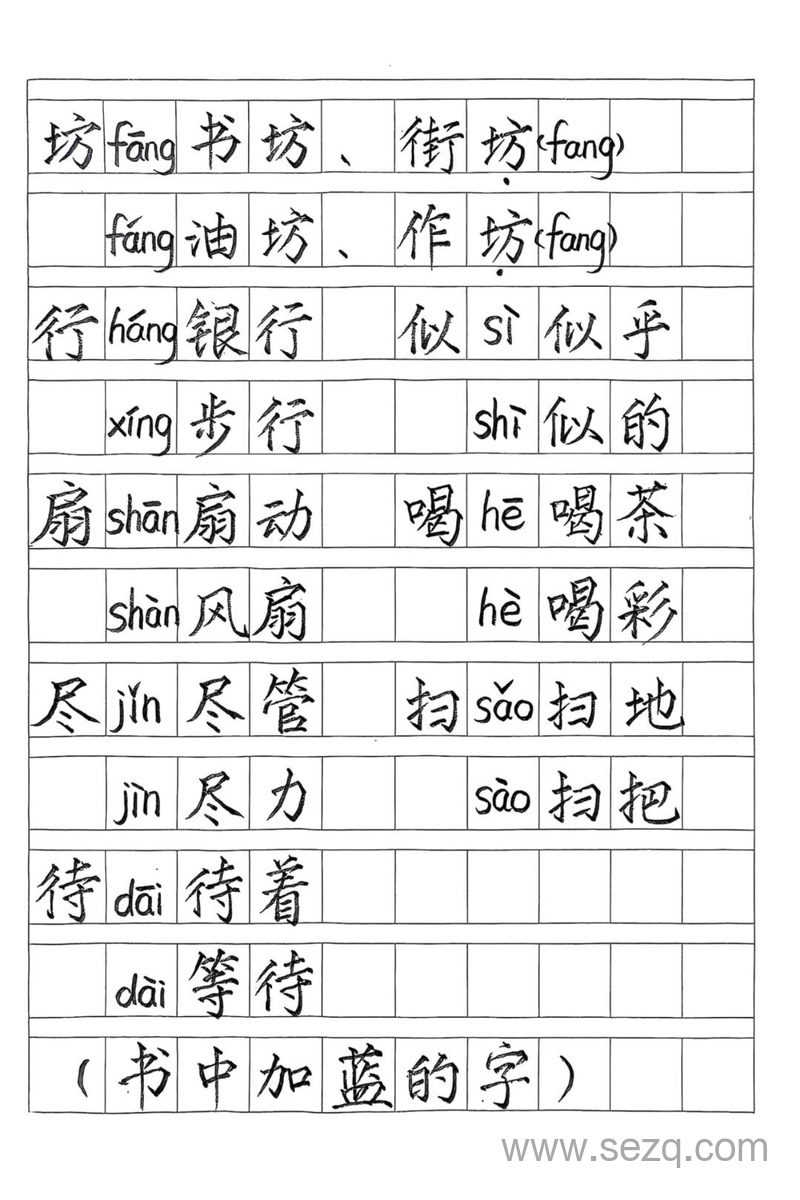 坊 fāng 书坊、街坊(fang)
fáng 油坊、作坊(fang)
行 háng 银行 似 sì 似乎
xíng 步行 shì 似的
扇 shān 扇动 喝 hē 喝茶
shàn 风扇 hè 喝彩
尽 jǐn 尽管 扫 sǎo 扫地
jìn 尽力 sào 扫把
待 dāi 待着
dài 等待
(书中加蓝的字)
www.sezq.com